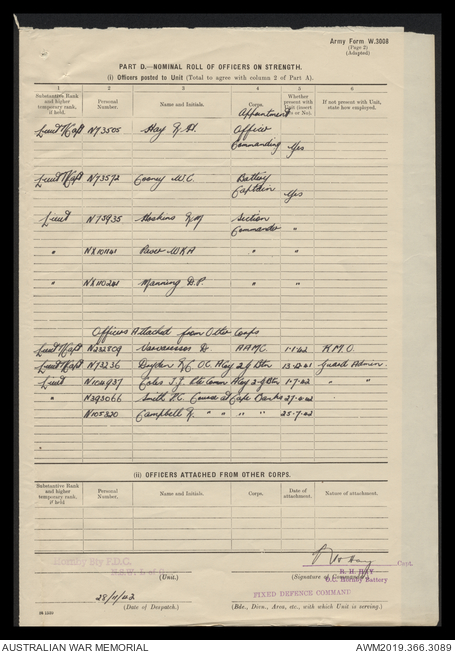 Army Form W.3008
(Page 2)
(Adapted)
PART D.—NOMINAL ROLL OF OFFICERS ON STRENGTH.
(i) Officers posted to Unit (Total to agree with column 2 of Part A).
1 2 3 4 5 6
Substantive Rank and higher temporary rank, if held. Personal Number. Name and Initials. Corps. Whether present with Unit (insert Yes or No). If not present with Unit, state how employed.
Appointment
Lieut T/Capt N73505 Hay R.H. Officer
Commanding Yes
Lieut T/Capt N73572 Cooney W.C. Battery
Captain Yes
Lieut N75935 Hoskins Section
Commander "
" NX101141 W K A " "
" NX110241 Manning D.P. " "
Officers Attached from Other Corps
Lieut T/Capt N232809 AAMC 1-1-42 R.M.O.
Lieut T/Capt N73236 OC Hay 2 G Btn 13-12-41 Guard Admin
Lieut N104937 Coles Hay 2 G Btn 1-7-42 " "
" N393066 Smith Cape Banks 27-2-42
N105320 Campbell R. " " " " 25-7-42
(ii) OFFICERS ATTACHED FROM OTHER CORPS.
Substantive Rank and higher temporary rank, if held Personal Number. Name and Initials. Corps. Date of attachment. Nature of attachment.
Hornby Bty F.D.C.
N.S.W. L of C
(Unit.)
R H Hay Capt.
(Signature of Commander)
R. H. HAY
O.C. Hornby Battery
28/11/42
(Date of Despatch.)
FIXED DEFENCE COMMAND
(Bde., Divn., Area, etc., with which Unit is serving.)
AUSTRALIAN WAR MEMORIAL
AWM2019.366.3089